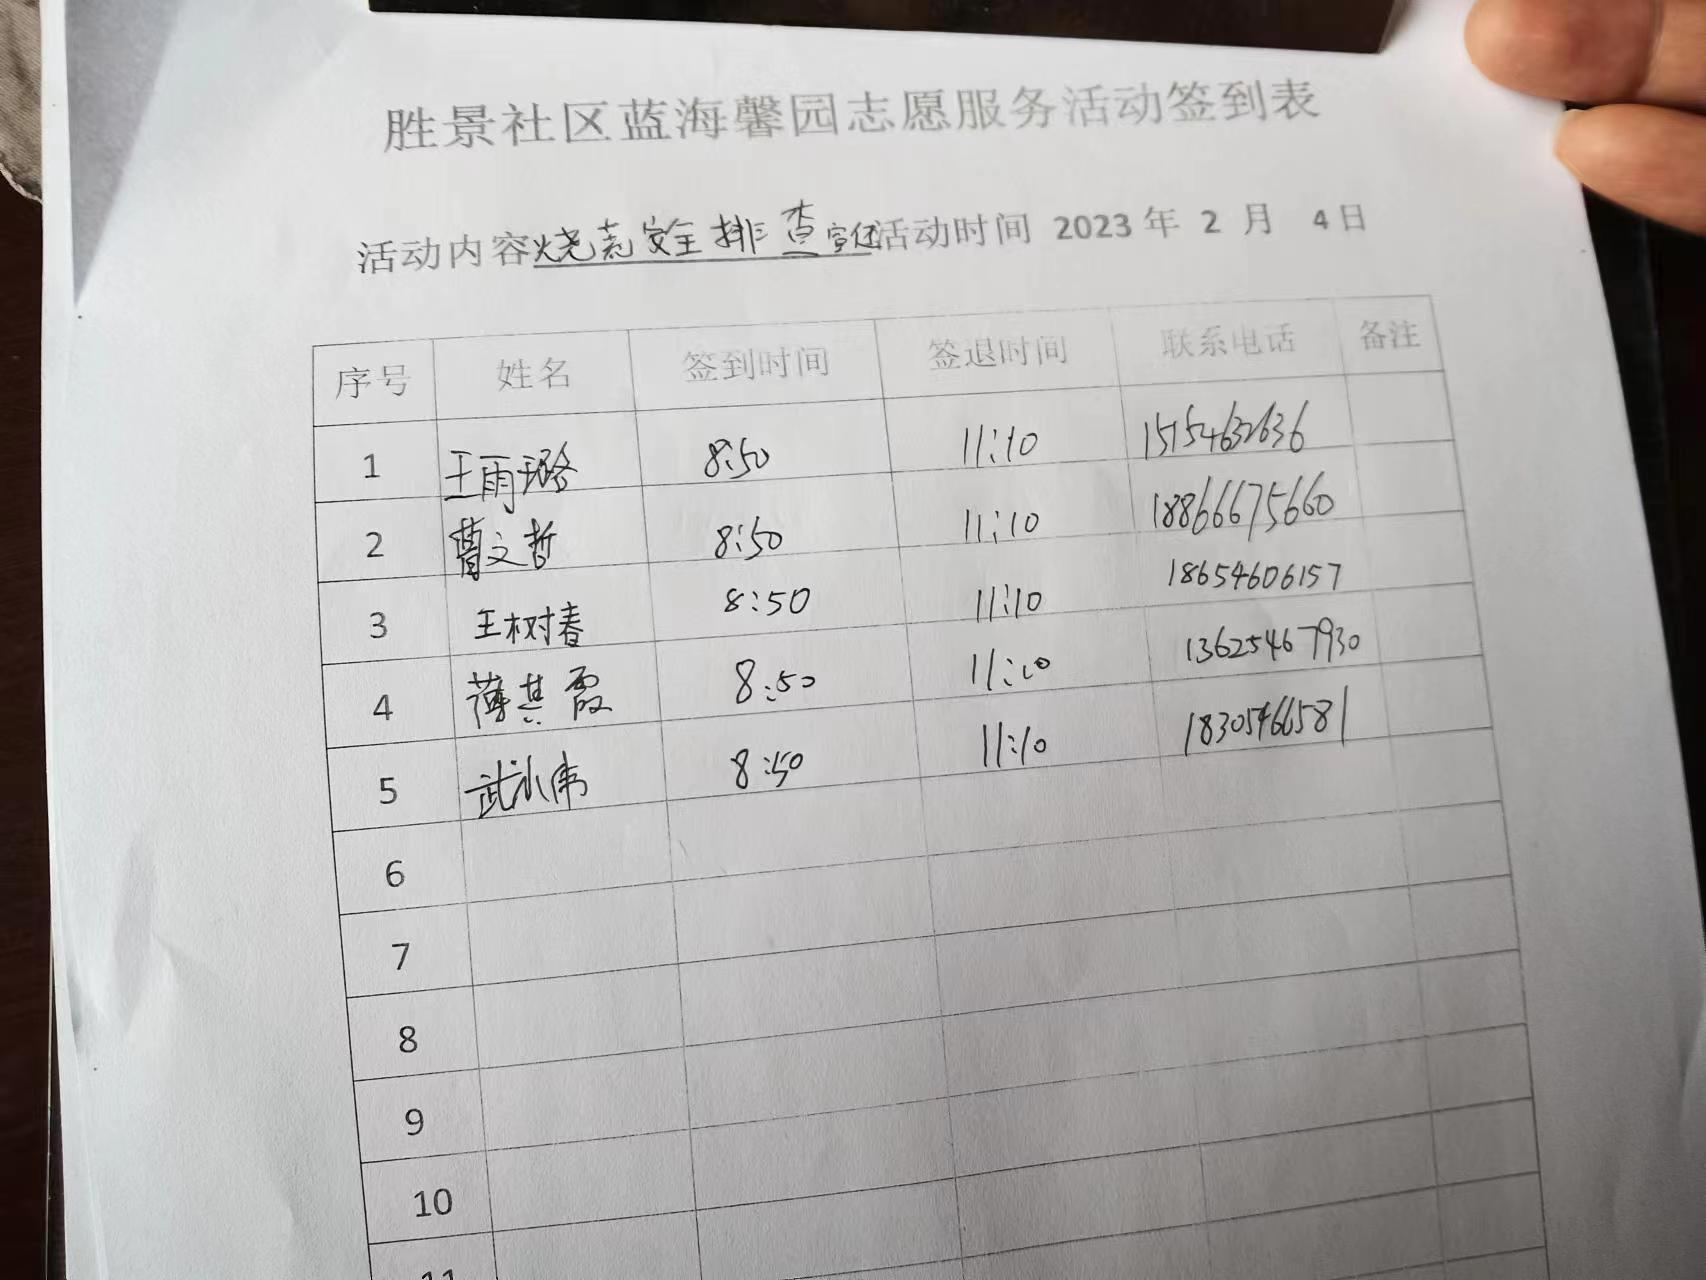 胜景社区蓝海馨园志愿服务活动签到表
活动内容 安全排查宣传 活动时间 2023 年 2 月 4 日
序号 姓名 签到时间 签退时间 联系电话 备注
1 王雨璐 8:50 11:10 15154632636
2 曹文哲 8:50 11:10 18866675660
3 王树春 8:50 11:10 18654606157
4 薄其霞 8:50 11:10 13625467930
5 武 伟 8:50 11:10 18305466581
6
7
8
9
10
11